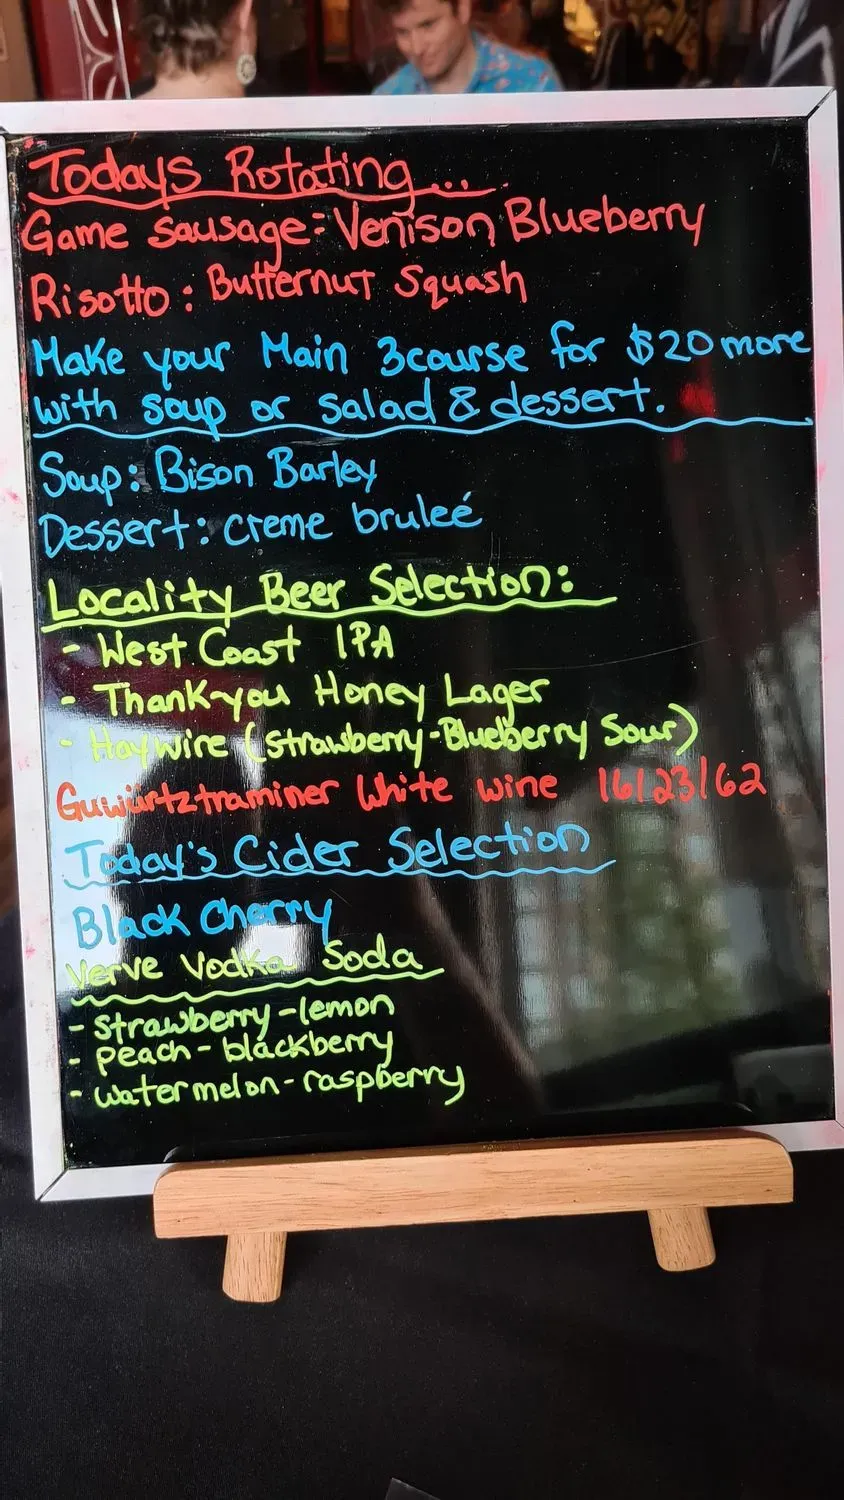 Todays Rotating...
Game Sausage: Venison Blueberry
Risotto: Butternut Squash
Make your Main 3course for $20 more
with soup or salad & dessert.
Soup: Bison Barley
Dessert: Creme bruleé
Locality Beer Selection:
- West Coast IPA
- Thank-you Honey Lager
- Haywire (Strawberry-Blueberry Sour)
Guwürtztraminer White wine 16/23/62
Today's Cider Selection
Black Cherry
Verve Vodka Soda
- Strawberry-lemon
- Peach-blackberry
- Watermelon-raspberry